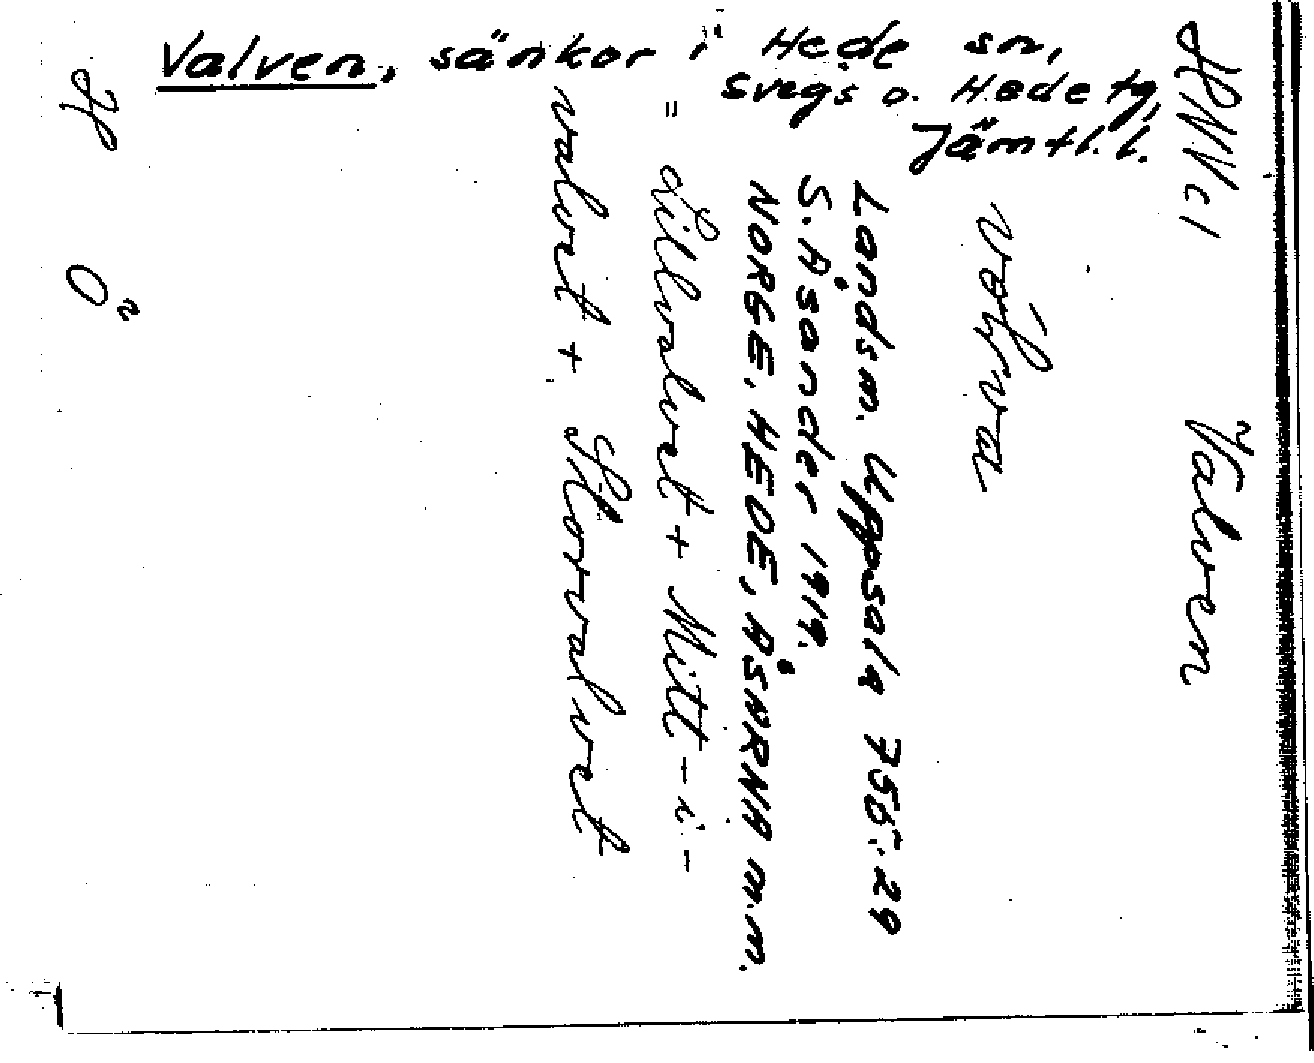 Valven, sänkor i Hede sn,
Svegs o. Hede tg,
Jämtl. l.
HNV c1 Valven
Landsm. Uppsala 755:29
S. Åsander 1919.
NORGE, HEDE, ÅSARNA m.m.
= Lillvalvet + Mitt-i-
valvet + Storvalvet
H Ö